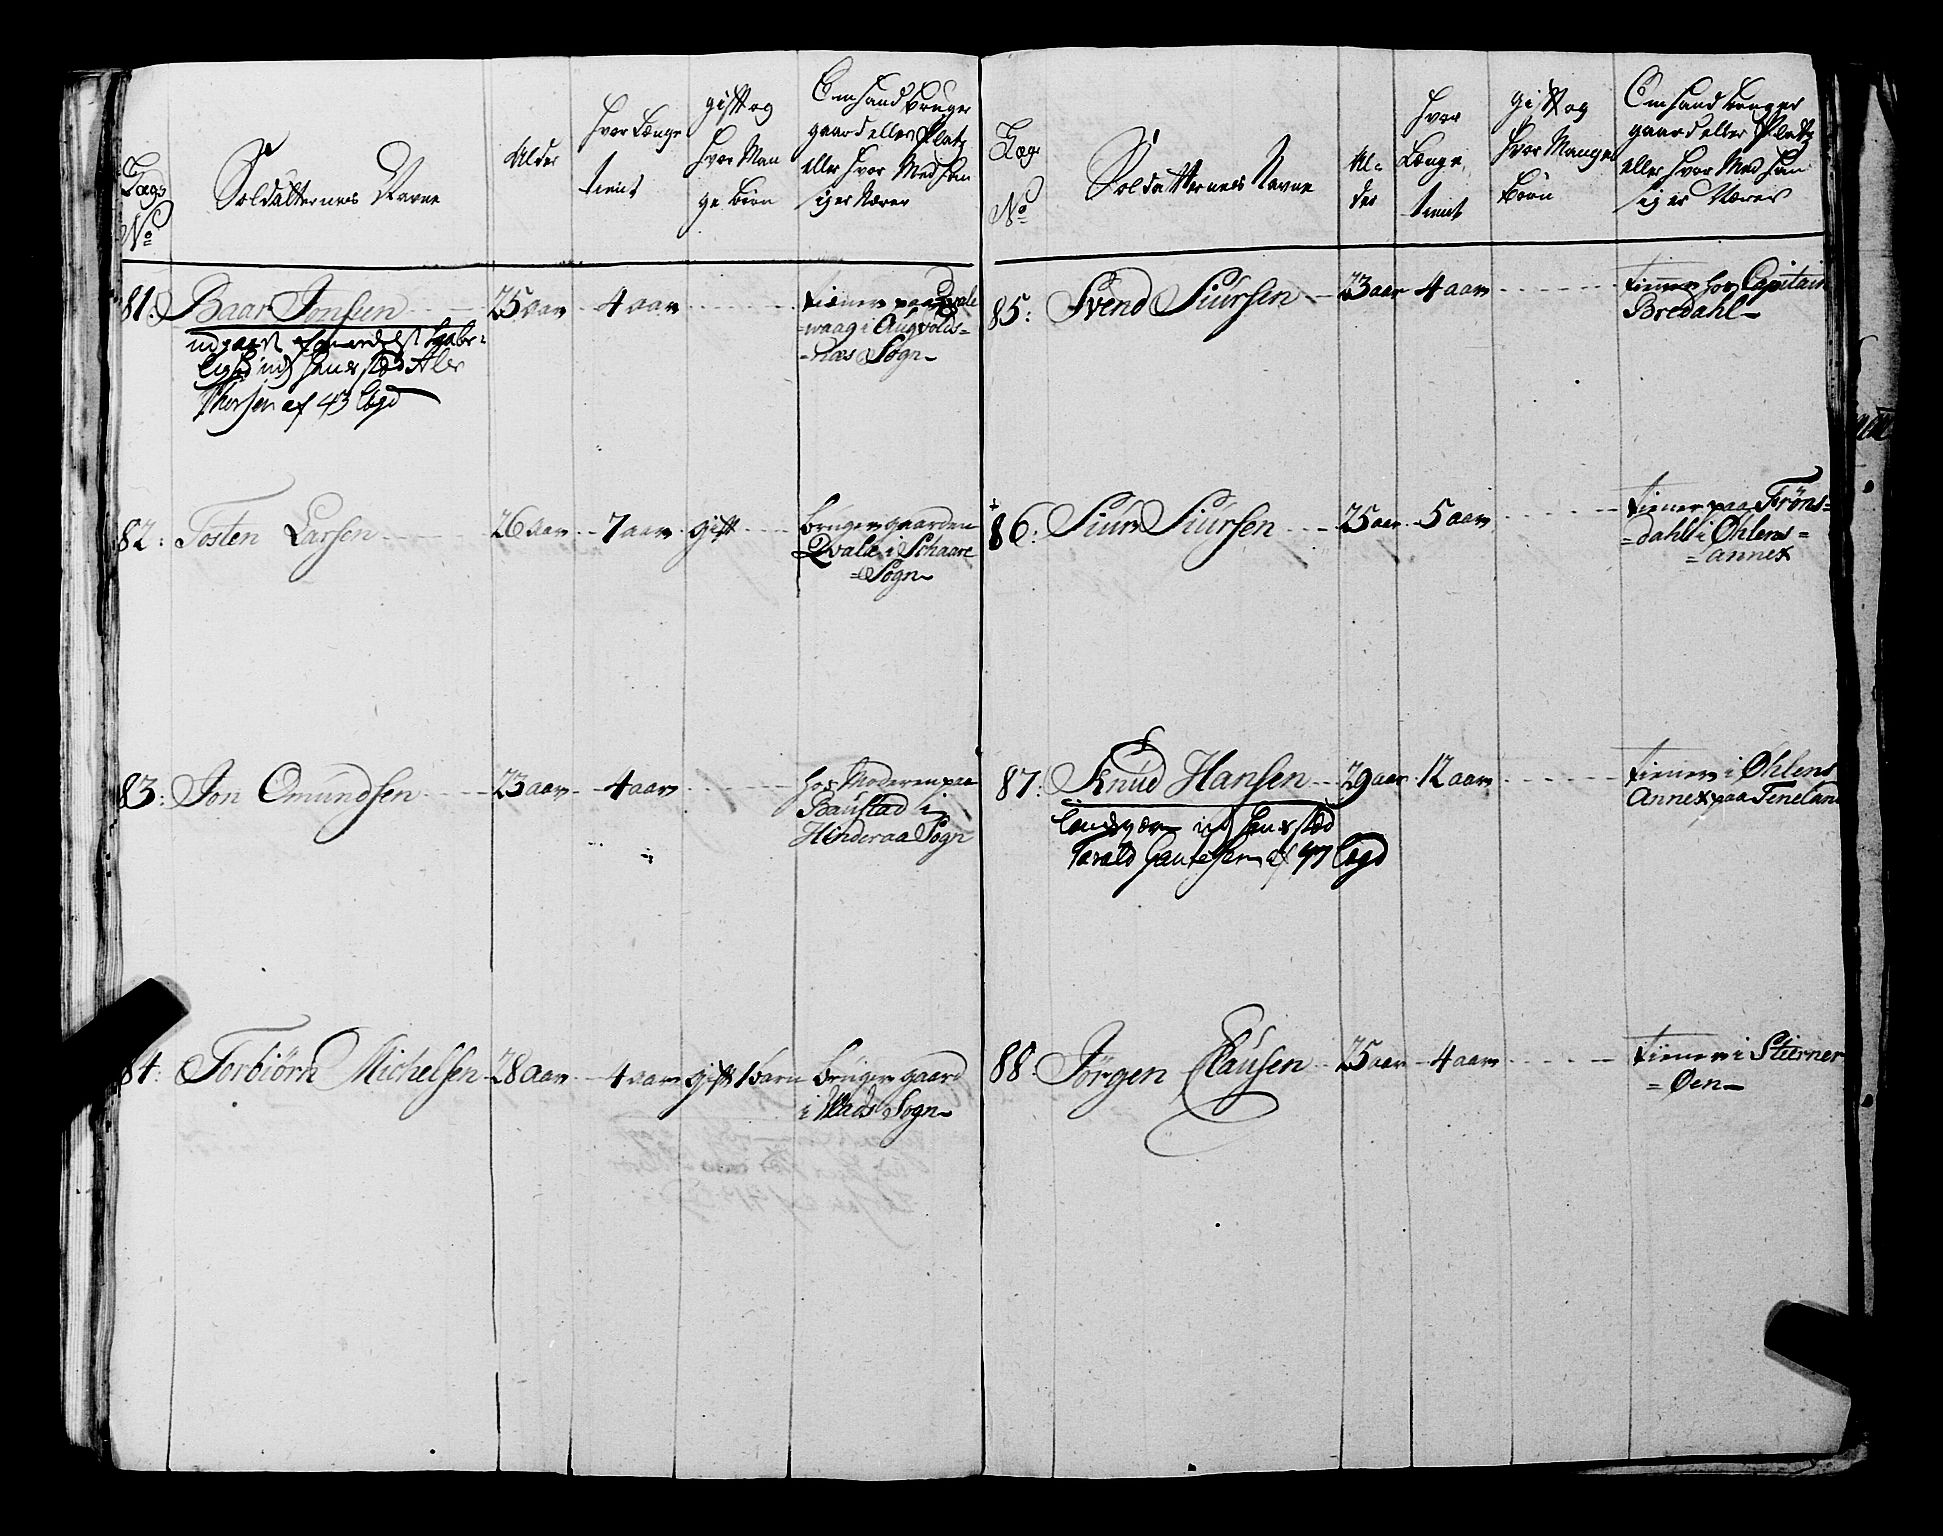 Lægs
No
Soldatternes Navne
Alder
hvor Længe
tient
gift og
hvor Man
ge børn
Om hand bruger
gaard eller Platz
eller hvor Med han
sig er Nærer
81. Baar Jonsen 25 aar 4 aar
tiener paa Qvale
=waag i Augvolds=
=næs Sogn
udgaaet
Thorsen af 43 Lægd
82: Tosten Larsen 26 aar 7 aar gift
bruger gaarden
Qvale i Schaare
=Sogn
83. Jon Omundsen 23 aar 4 aar
hos Moderen paa
Baustad i
Hinderaa Sogn
84. Torbiörn Michelsen 28 aar 4 aar gift 1 barn
bruger gaard
i Wads Sogn
Lægs
No
Soldatternes Navne
Al=
der
hvor
Længe
tient
gift og
hvor Mange
børn
Om hand bruger
gaard eller Platz
eller hvor Med han
sig er Nærer
85: Svend Siursen 23 aar 4 aar
tiener hos Capitain
Bredahl
86. Siur Siursen 25 aar 5 aar
tiener paa Tröns=
=dahl i Øhlens=
=annex
87. Knud Hansen 29 aar 12 aar
tiener i Øhlens
Annex paa Teneland
Landværn udj hans stæd
Tarald af 47 Lægd
88. Jörgen Clausen 25 aar 4 aar
tiener i Stierner
=Øen